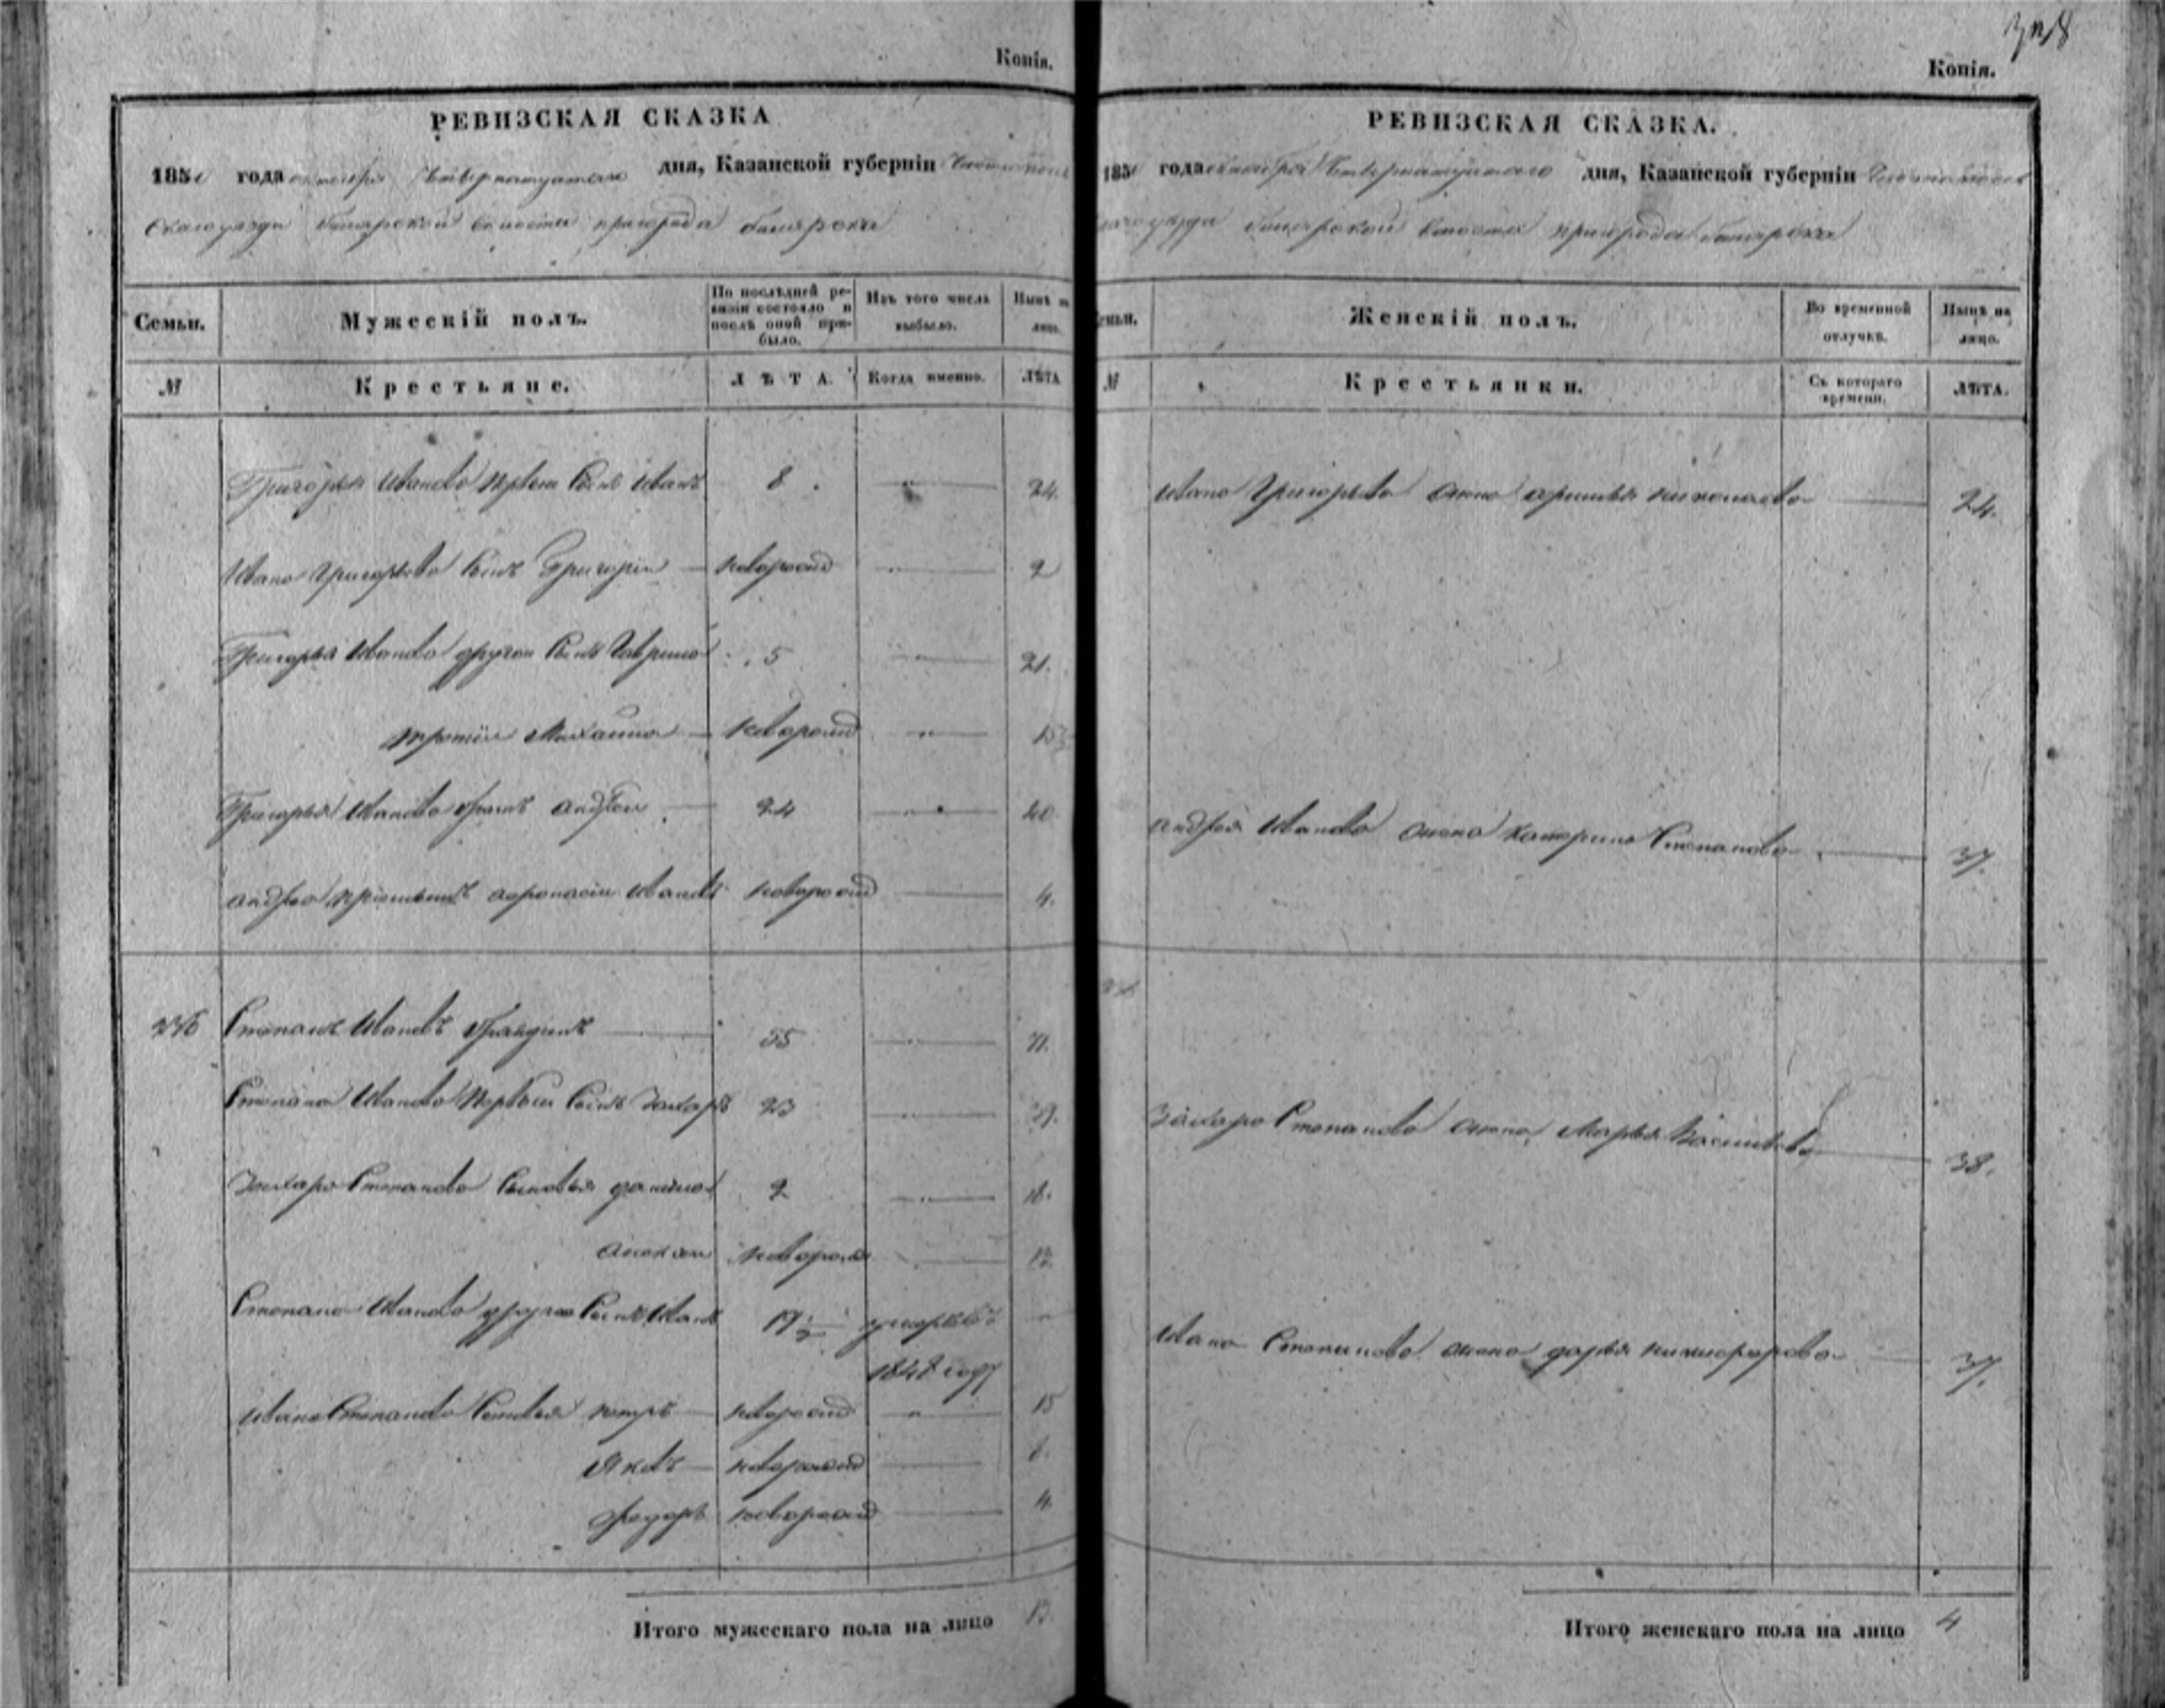 Копія.
РЕВИЗСКАЯ СКАЗКА
1850 года октября дня, Казанской губерніи Чистополь
скаго уѣзда билярской волости пригорода билярска
Семьи.
Мужескій полъ.
По послѣдней ре-
визіи состояло и
послѣ оной при-
было.
Изъ того числа
выбыло.
Нынѣ на
лицо.
№
Крестьяне.
ЛѢТА.
Когда именно.
ЛѢТА
Григорья Иванова первой сынъ Иванъ 8 " 24.
Ивана Григорьева сынъ Григорій новорожд " 2
Григорья Иванова другой сынъ Гаврило 5 " 21.
третій Михайло новорожд " 15
Григорья Иванова братъ андрей 24 " 40
андрея афонасій Ивановъ новорожд 4.
Степанъ Ивановъ 55 " 71.
Степана Иванова первый сынъ Захаръ 23 " 39.
Захара Степанова сыновья данило 2 " 18.
новорожд 12
Степана Иванова другой сынъ Иванъ 19 1/2 умеръ въ
1848 году
Ивана Степанова сыновья петръ новорожд " 15
Яковъ новорожд 8.
федоръ новорожд 4.
Итого мужескаго пола на лицо 13.
Копія.
РЕВИЗСКАЯ СКАЗКА.
1850 года октября дня, Казанской губерніи Чистополь
скаго уѣзда билярской волости пригорода билярска
Семьи.
Женскій полъ.
Во временной
отлучкѣ.
Нынѣ на
лицо.
№
Крестьянки.
Съ котораго
времени.
ЛѢТА.
Ивана Григорьева жена николаева 24.
андрея Иванова жена катерина Степанова 37.
Захара Степанова жена Марья Васильева 38.
Ивана Степанова жена дарья никифорова 37.
Итого женскаго пола на лицо 4